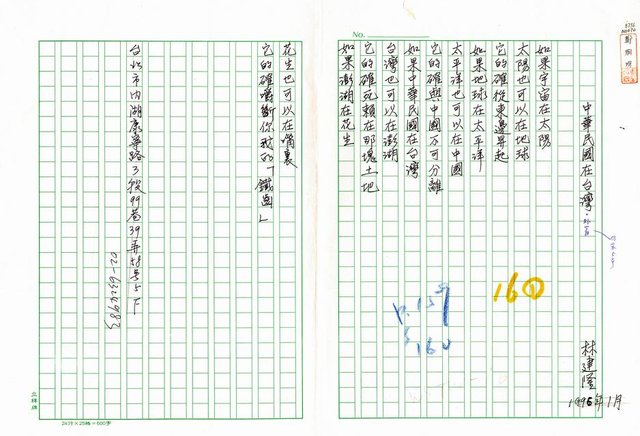 No.
中華民國在台灣
林建隆
1996年1月
如果宇宙在太陽
太陽也可以在地球
它的確從東邊昇起
如果地球在太平洋
太平洋也可以在中國
它的確與中國不可分離
如果中華民國在台灣
台灣也可以在澎湖
它的確死賴在那塊土地
如果澎湖在花生
花生也可以在嘴裏
它的確嚼斷你我的「鐵齒」
台北市內湖康寧路3段99巷39弄58號5F
160
P.159
160
24行×25格=600字